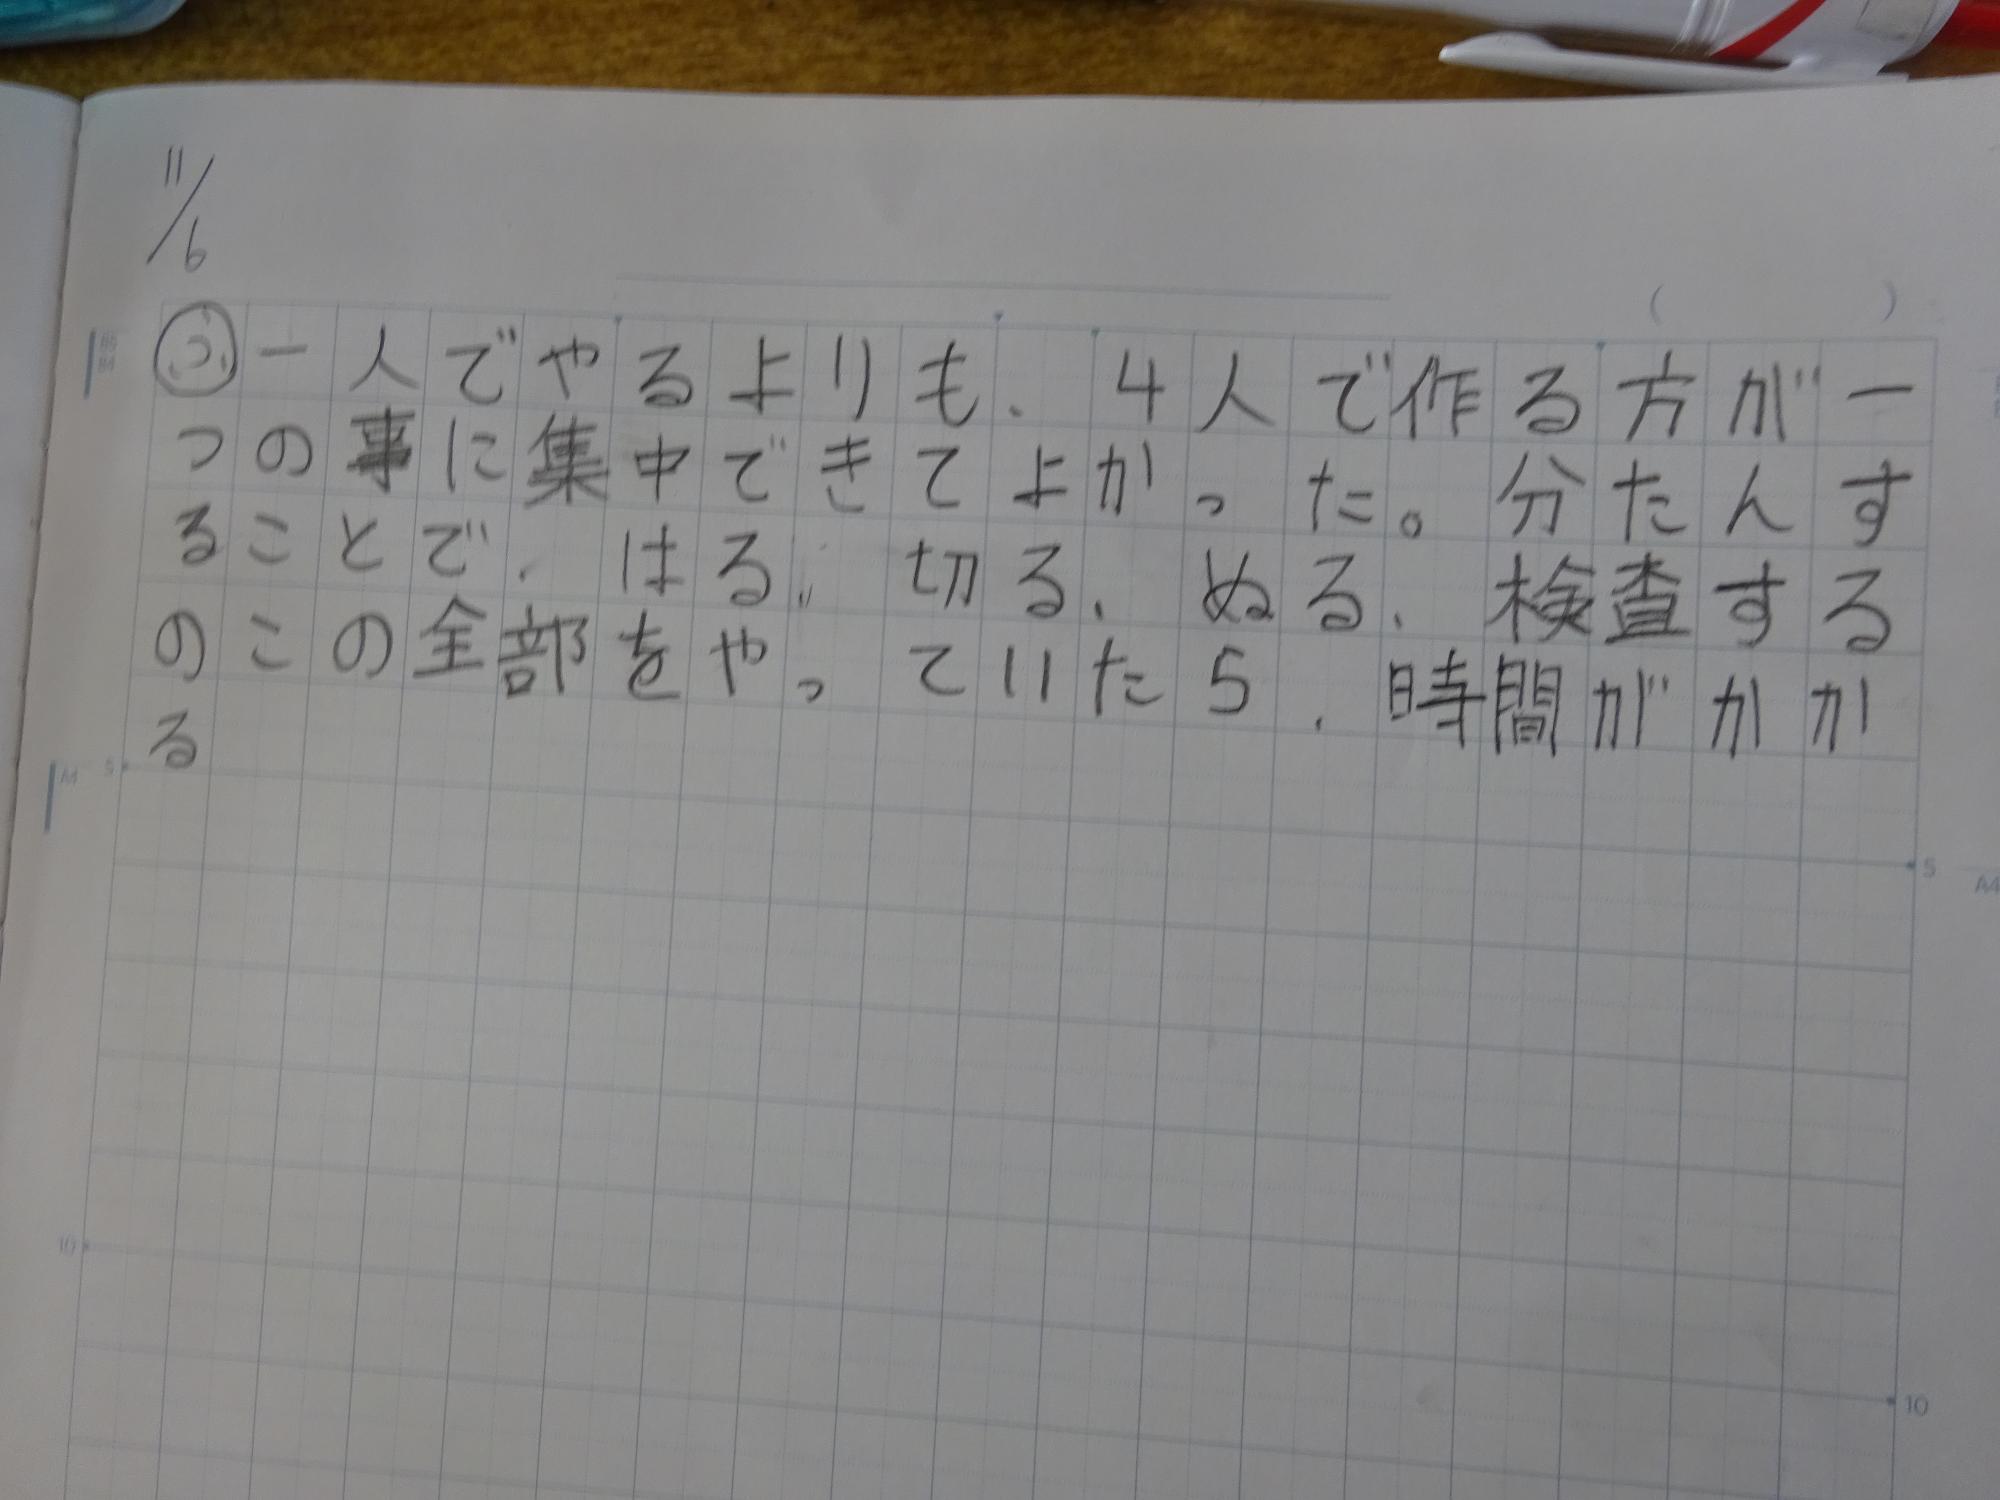 11/6
ふ一人でやるよりも、4人で作る方が一
つの事に集中できてよかった。分たんす
ることで、はる、切る、ぬる、検査する
のこの全部をやっていたら、時間がかか
る
( )
5
A4
5
A4
10
10